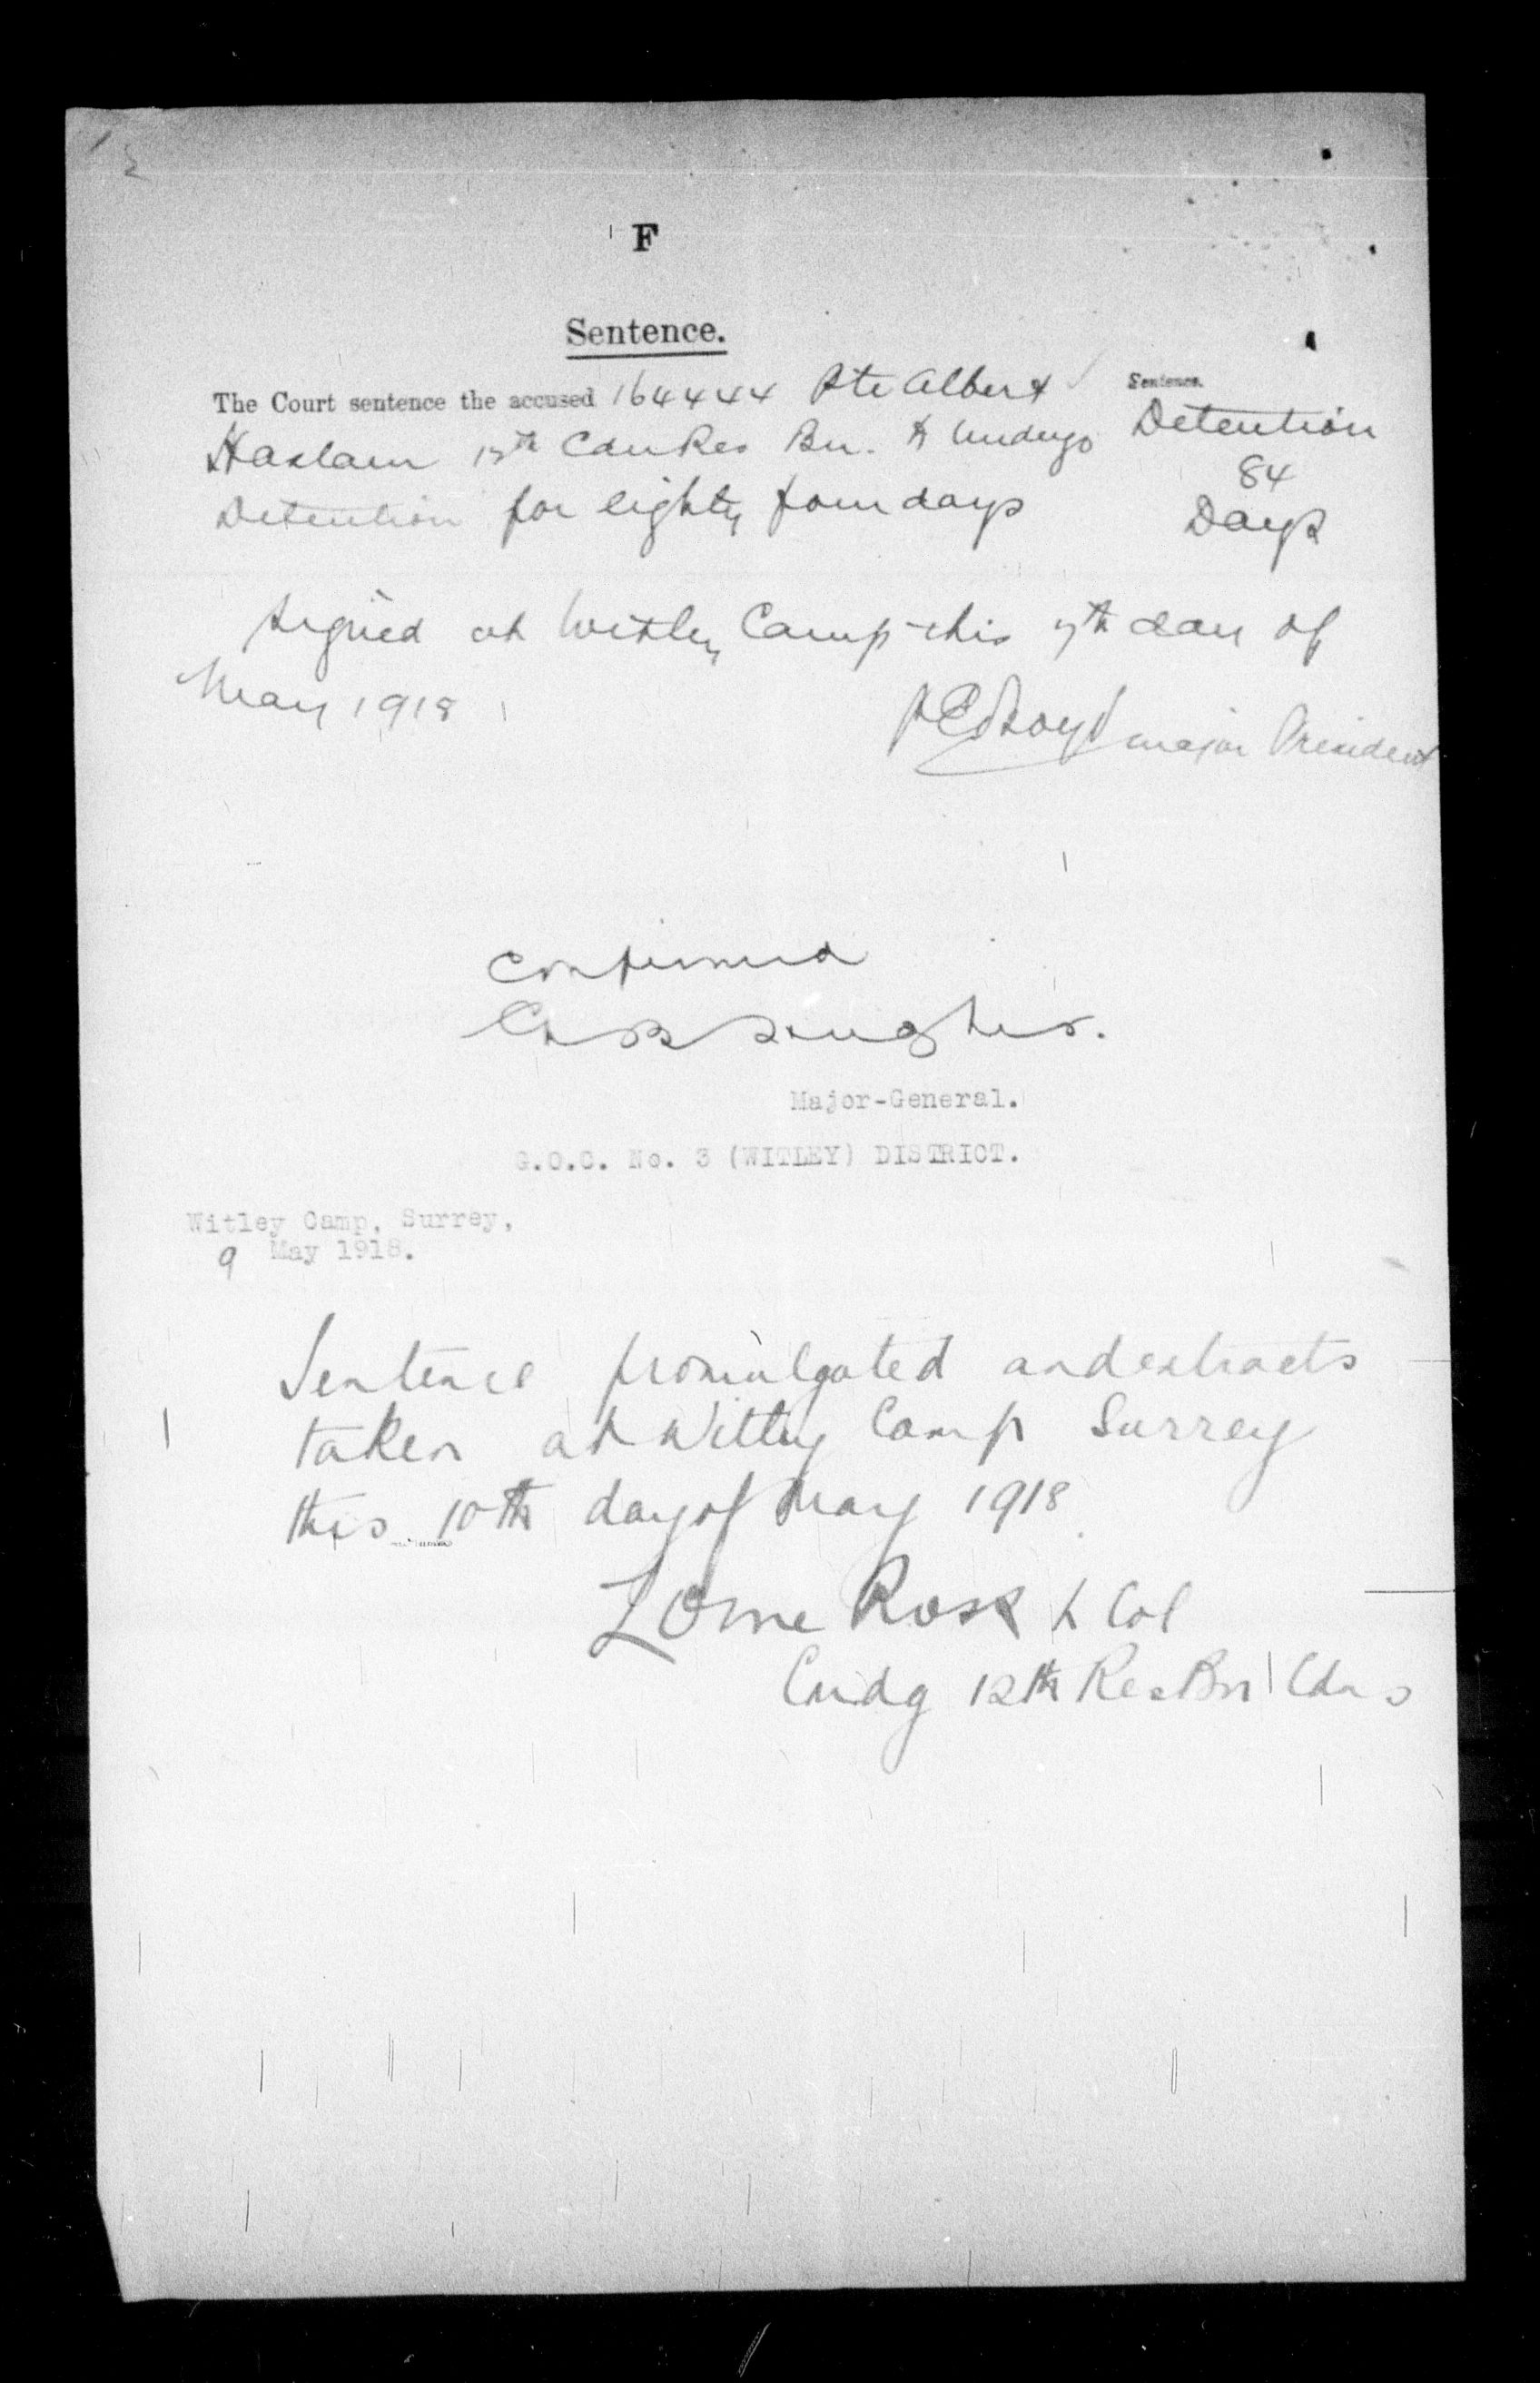 F
Sentence.
The Court sentence the accused 164444 Pte Albert
Haslam 12th Cdn Res Bn. to undergo
Detention for eighty four days
Sentence.
Detention
84
Days
Signed at Witley Camp this 7th day of
May 1918
Major President
Confirmed
Major-General.
G.O.C. No. 3 (WITLEY) DISTRICT.
Witley Camp, Surrey,
9 May 1918.
Sentence promulgated and extracts
taken at Witley Camp Surrey
this 10th day of May 1918
Lorne Ross Lt Col
Cmdg 12th Res Bn Cdns